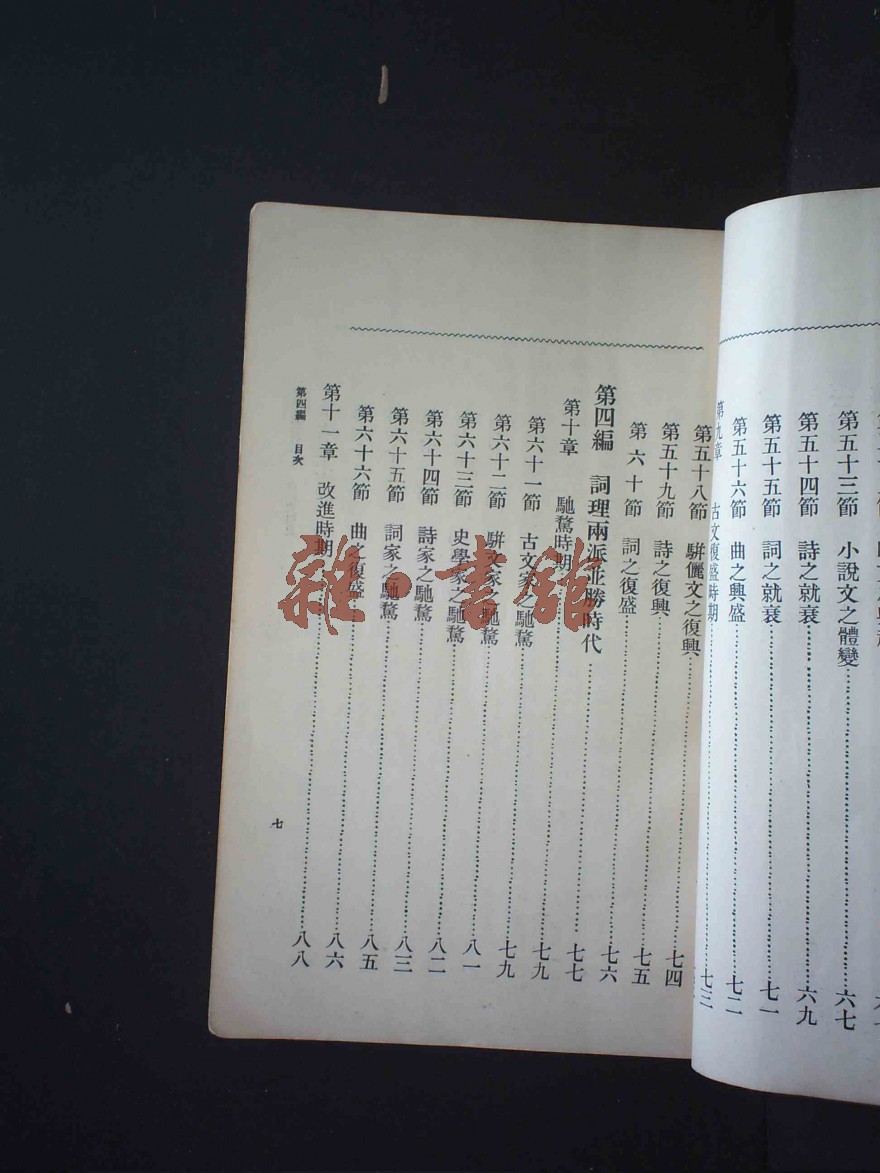 第五十三節 小說文之體變……六七
第五十四節 詩之就衰……六九
第五十五節 詞之就衰……七一
第五十六節 曲之興盛……七二
第九章 古文復盛時期……七三
第五十八節 駢儷文之復興……七四
第五十九節 詩之復興……七五
第六十節 詞之復盛……七六
第四編 詞理兩派並勝時代……七七
第十章 馳騖時期……七九
第六十一節 古文家之馳騖……七九
第六十二節 駢文家之馳騖……八一
第六十三節 史學家之馳騖……八二
第六十四節 詩家之馳騖……八三
第六十五節 詞家之馳騖……八五
第六十六節 曲之復盛……八六
第十一章 改進時期……八八
第四編 目次
七
雜·書館